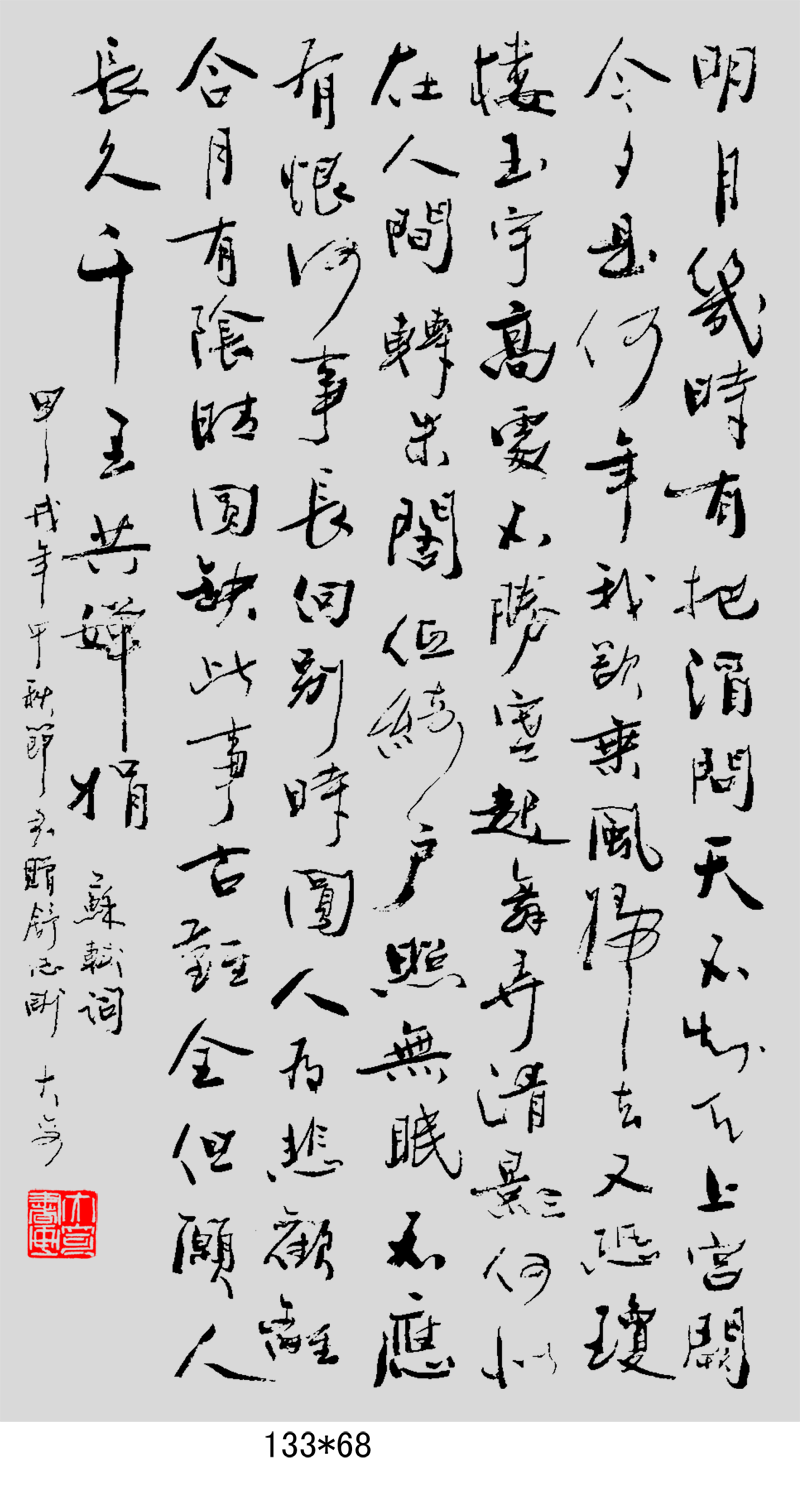 明月幾時有把酒問天不知天上宮闕
今夕是何年我欲乘風歸去又恐瓊
樓玉宇高處不勝寒起舞弄清影何似
在人間轉朱閣低綺戶照無眠不應
有恨何事長向別時圓人有悲歡離
合月有陰晴圓缺此事古難全但願人
長久千里共嬋娟 蘇軾詞
甲戌年中秋節书贈舒
133*68